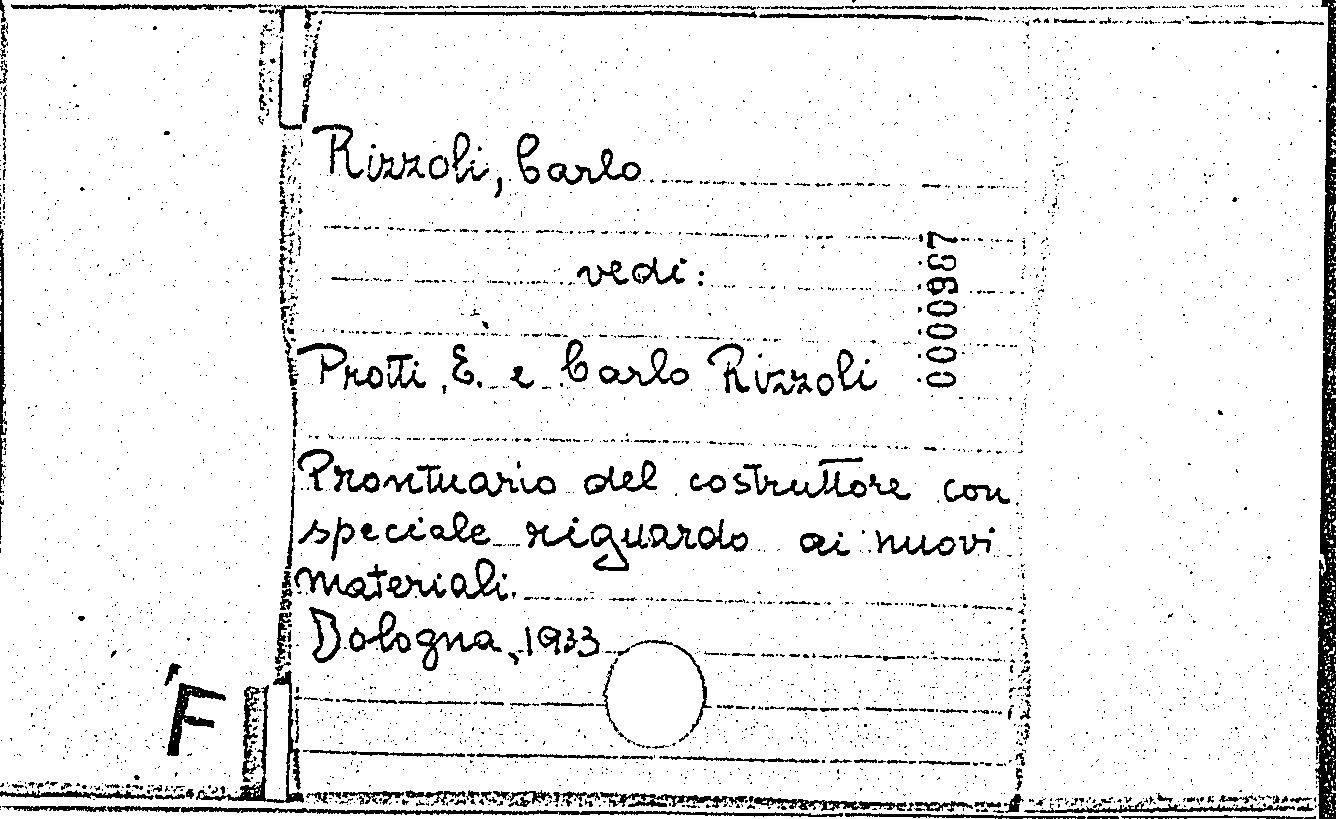 Rizzoli, Carlo
vedi:
Protti, E. e Carlo Rizzoli
Prontuario del costruttore con
speciale riguardo ai nuovi
materiali.
Bologna, 1933
0000967
F